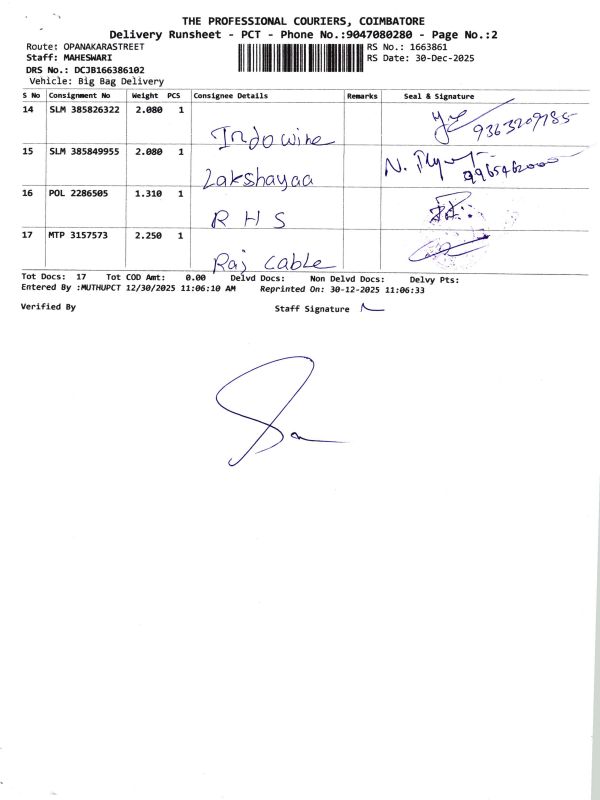 THE PROFESSIONAL COURIERS, COIMBATORE
Delivery Runsheet - PCT - Phone No.:9047080280 - Page No.:2
Route: OPANAKARASTREET
Staff: MAHESWARI
DRS No.: DCJB166386102
Vehicle: Big Bag Delivery
RS No.: 1663861
RS Date: 30-Dec-2025
S No Consignment No Weight PCS Consignee Details Remarks Seal & Signature
14 SLM 385826322 2.080 1 Indo wine
15 SLM 385849955 2.080 1 Lakshayaa
16 POL 2286505 1.310 1 R H S
17 MTP 3157573 2.250 1 Raj cable
Tot Docs: 17 Tot COD Amt: 0.00 Delvd Docs: Non Delvd Docs: Delvy Pts:
Entered By :MUTHUPCT 12/30/2025 11:06:10 AM Reprinted On: 30-12-2025 11:06:33
Verified By Staff Signature